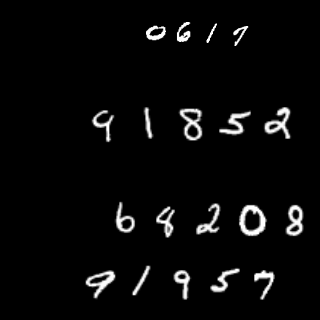 0617
91852
68208
91957